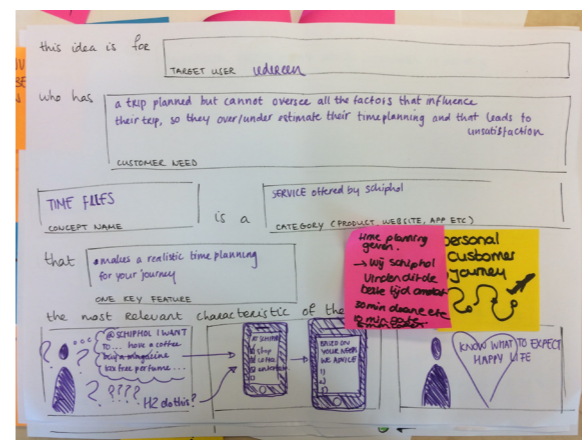 this idea is for
TARGET USER iedereen
who has
a trip planned but cannot oversee all the factors that influence
their trip, so they over/under estimate their timeplanning and that leads to
unsatisfaction
CUSTOMER NEED
TIME FLIES
CONCEPT NAME
is a
SERVICE offered by schiphol
CATEGORY (PRODUCT, WEBSITE, APP ETC)
that
makes a realistic time planning
for your journey
ONE KEY FEATURE
time planning
geven.
→ wij schiphol
vinden dit de
beste tijd
30 min douane etc
10 min gate
personal
customer
journey
the most relevant characteristic of the
@SCHIPHOL I WANT
TO ... have a coffee
buy a magazine
tax free perfume ...
? ? ? ????
H2 do this?
shop
coffee
BASED ON
YOUR NEEDS
WE ADVICE
1)
2)
KNOW WHAT TO EXPECT
HAPPY LIFE